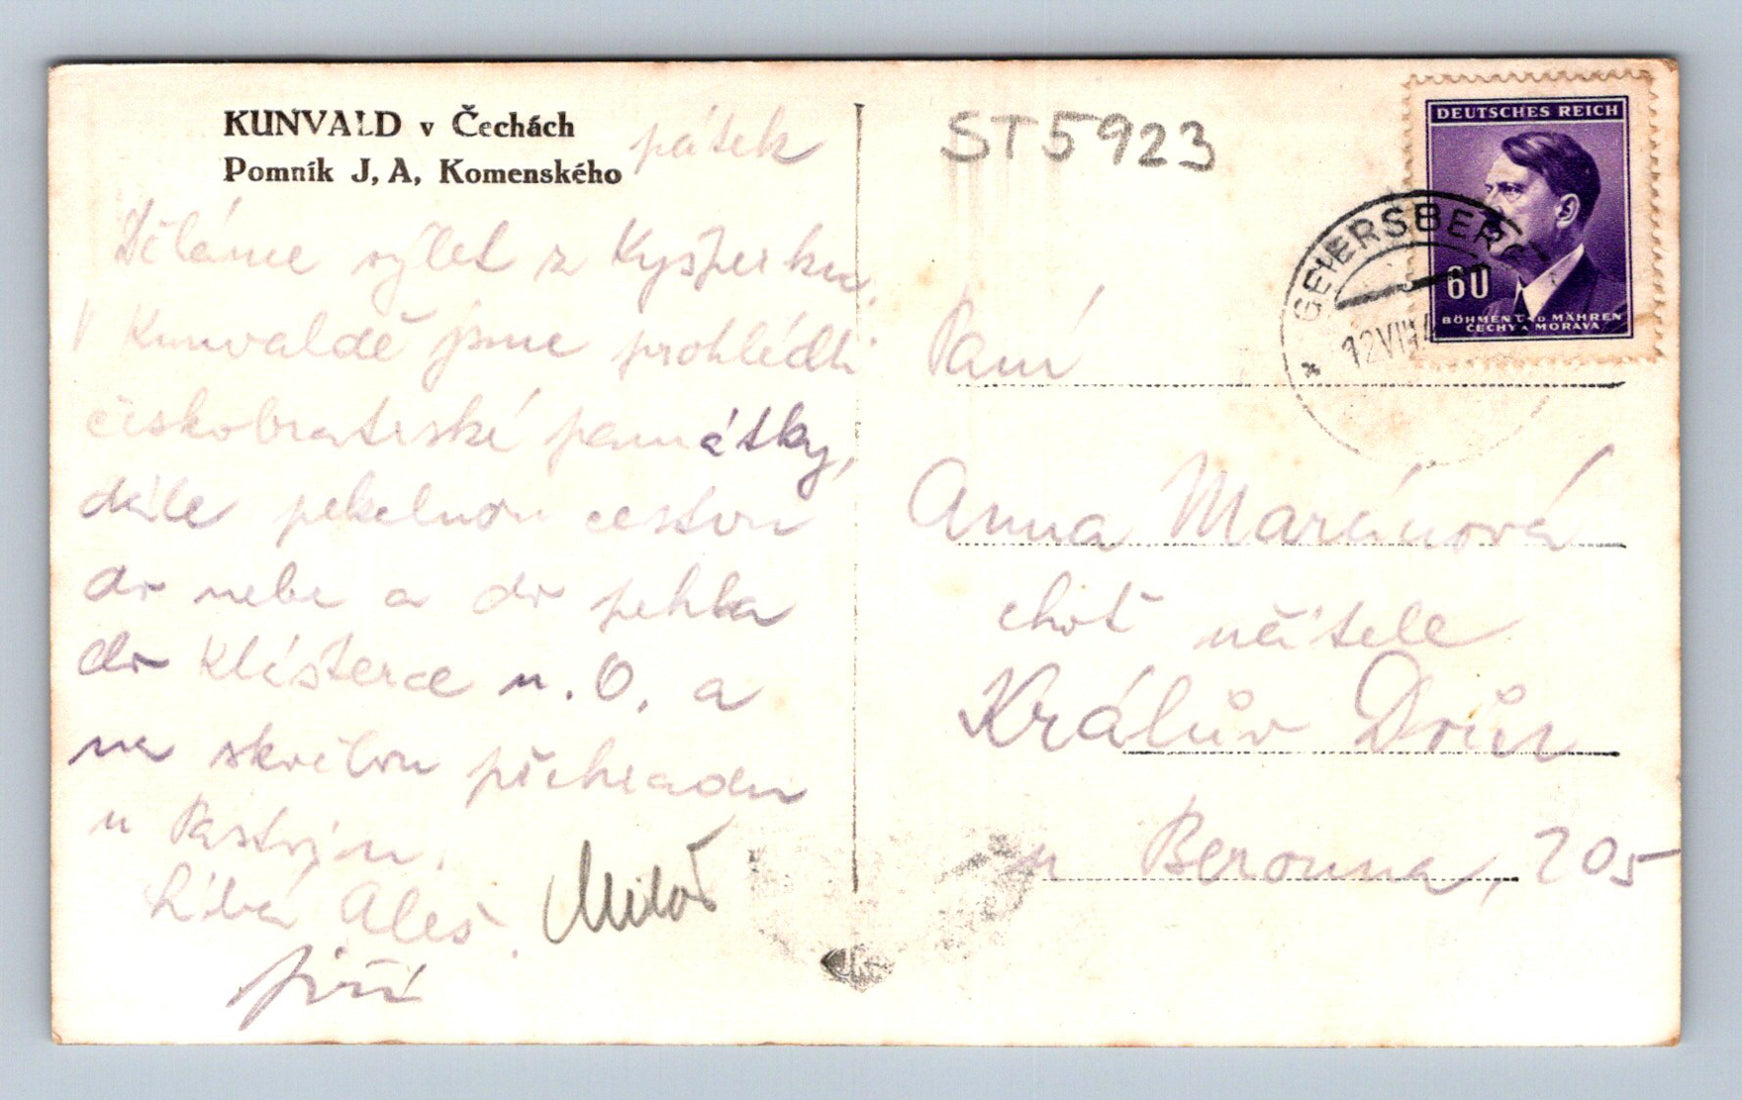 KUNVALD v Čechách
Pomník J, A, Komenského
pátek
Děláme výlet z Kyšperku.
V Kunvaldě jsme prohlédli
českobratrské památky,
dále pekelnou cestou
do nebe a do pekla
do Klášterce n. O. a
na skvělou přehradu
u Pastvin.
Líbá Aleš.
Miloš
Jiří
ST5923
DEUTSCHES REICH
60
BÖHMEN U. D MÄHREN
ČECHY A MORAVA
GEIERSBERG
12 VIII 4
Paní
Anna Maránová
choť učitele
Králův Dvůr
u Berouna, 205